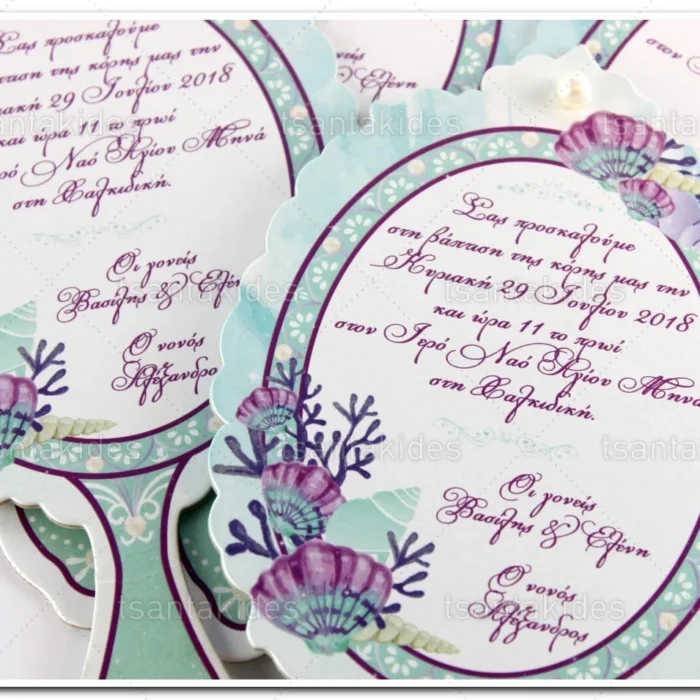 Σας προσκαλούμε
βάπτιση της κόρης μας την
Κυριακή 29 Ιουλίου 2018
και ώρα 11 το πρωί
Ιερό Ναό Αγίου Μηνά
στη Χαλκιδική.
Οι γονείς
Βασίλης & Ελένη
Ο νονός
Αλέξανδρο
Ελένη
στον
Σας προσκαλούμε
στη βάπτιση της κόρης μας την
Κυριακή 29 Ιουλίου 2018
και ώρα 11 το πρωί
στον Ιερό Ναό Αγίου Μηνά
στη Χαλκιδική.
Οι γονείς
Βασίλης & Ελένη
Ο νονός
Αλέξανδρος
tsantakides